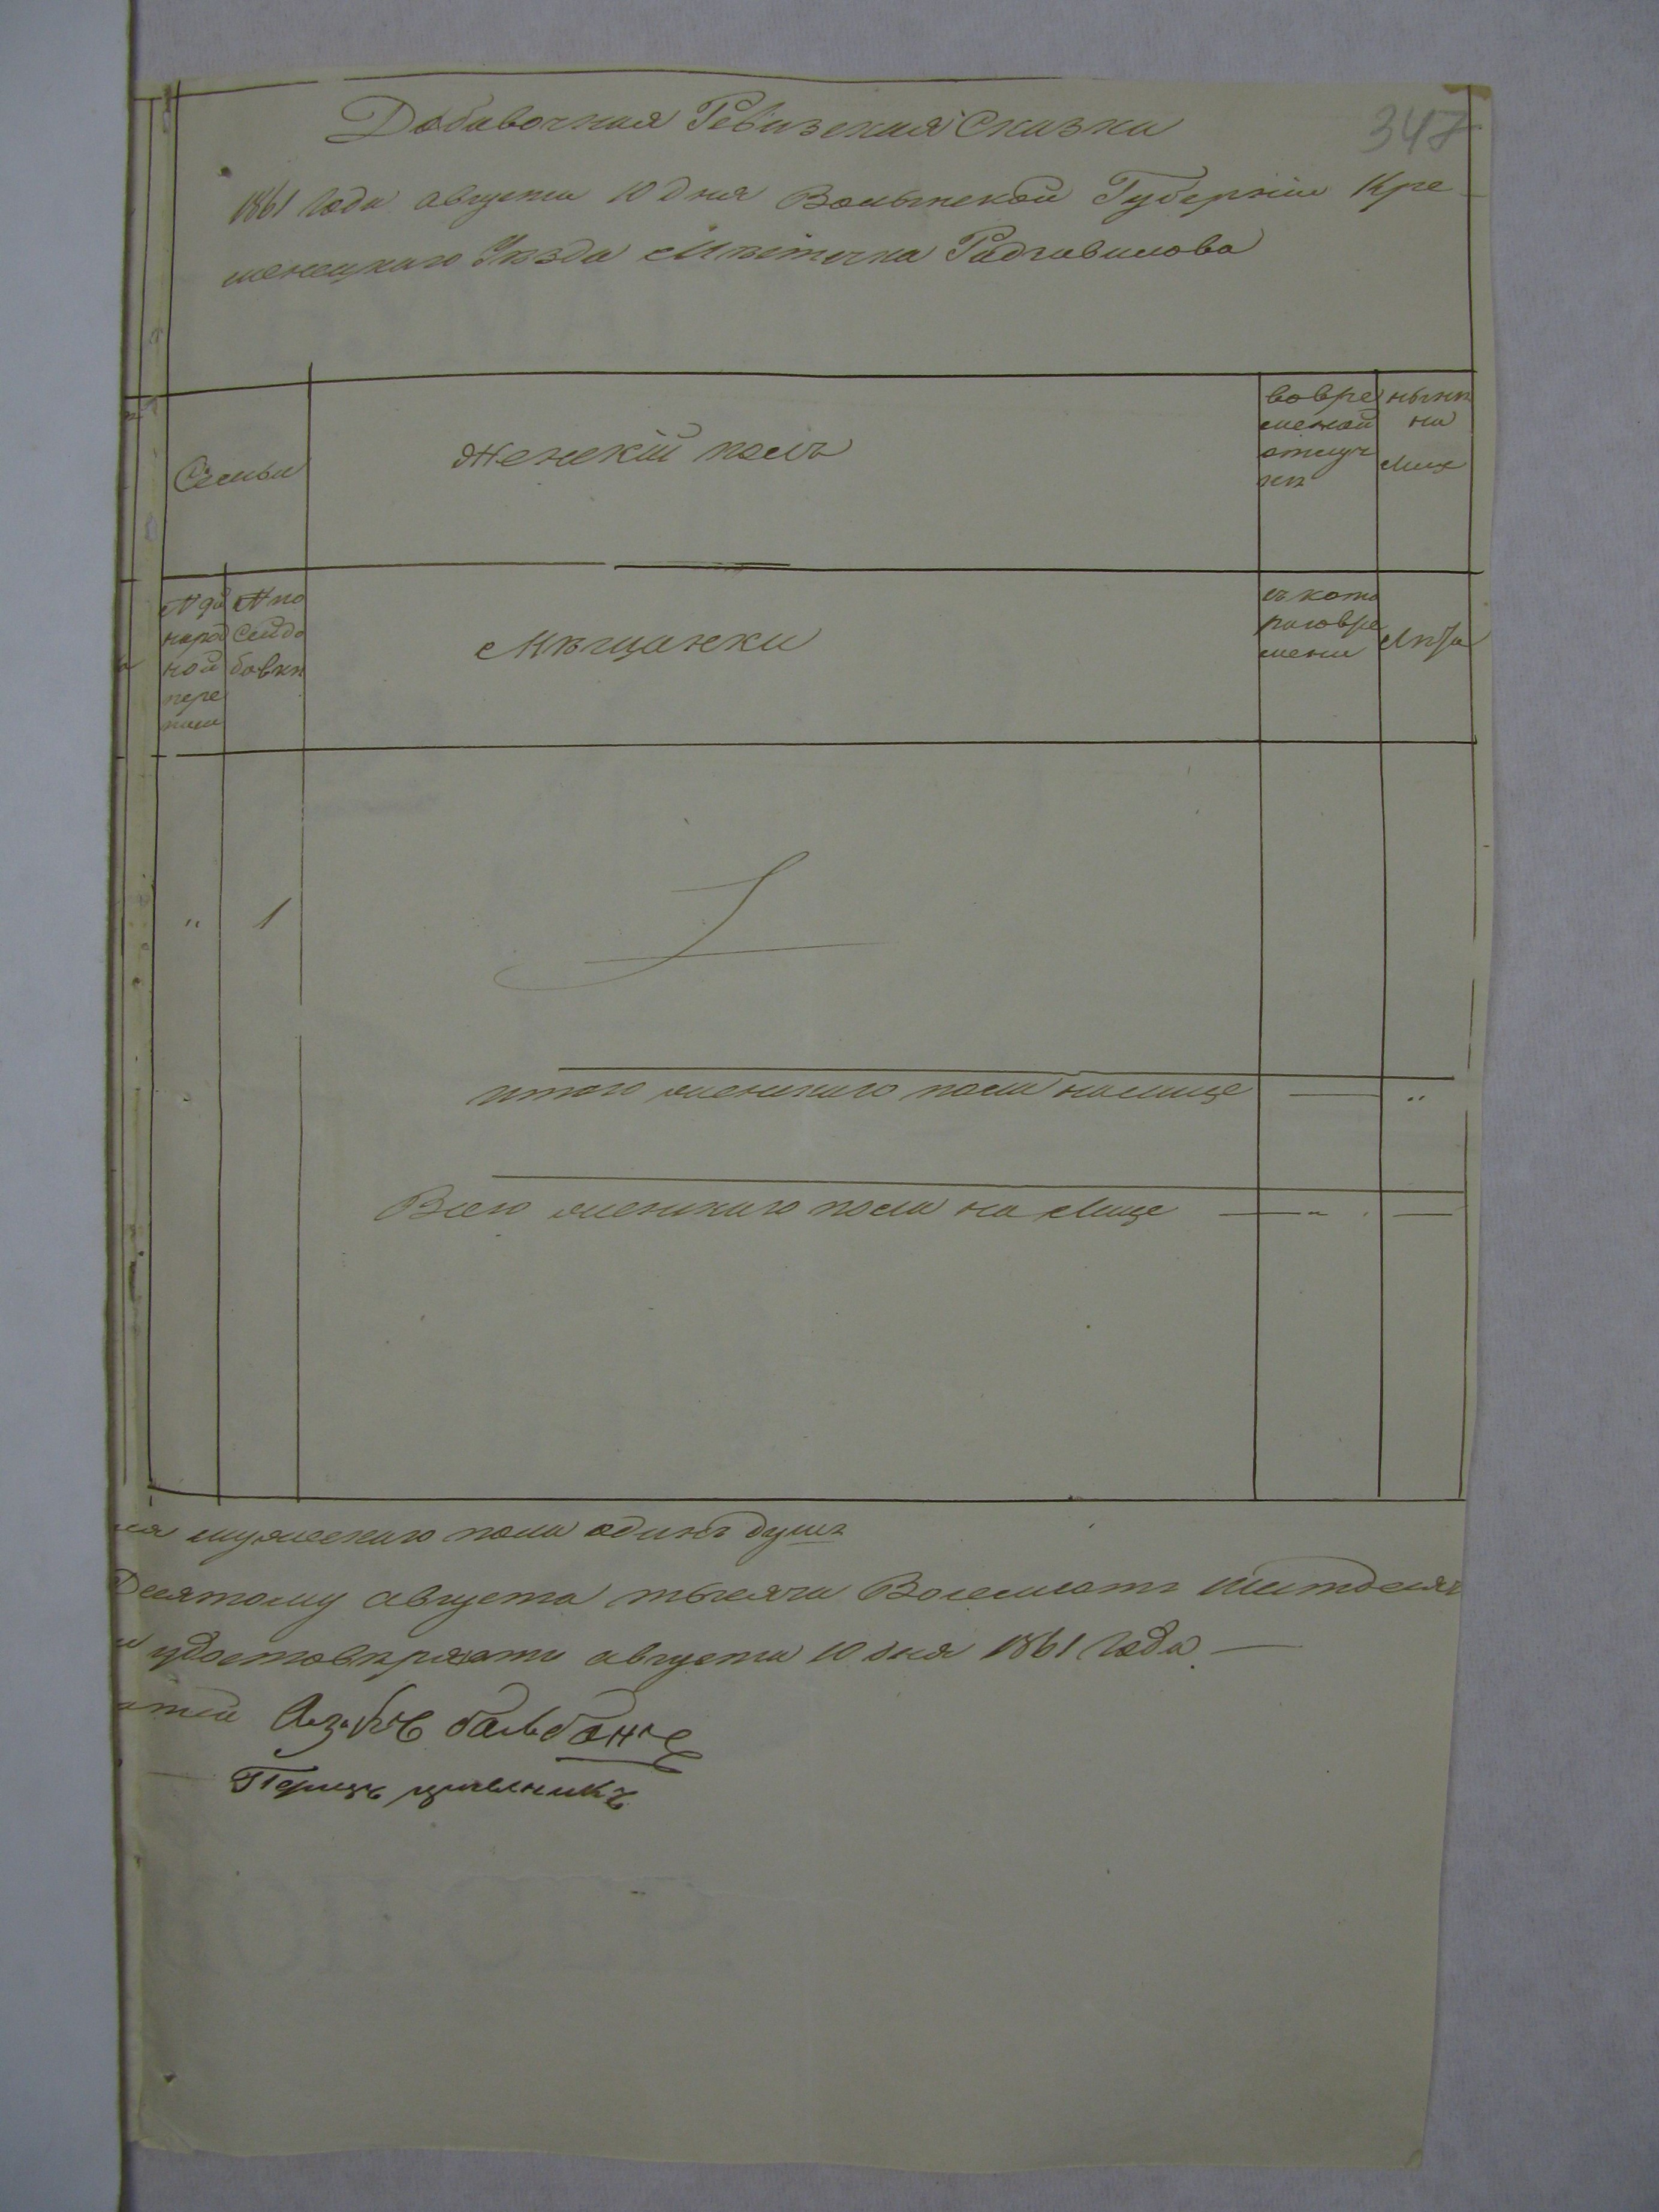 347
Добавочная Ревизская Сказка
1861 года августа 10 дня Волынской Губернiи Кре-
менецкаго Уѣзда Мѣстечка Радзивилова
Семьи
Женскiй полъ
во вре
меной
отлуч
кѣ
нынѣ
на
лице
N 9й
народ
ной
пере
писи
N по
сей до
бавкѣ
Мѣщанки
съ кото
раго вре
мени
Лѣта
" 1
итого женскаго пола налице — "
Всего женскаго пола на лице — " —
мужескаго пола одинъ душъ
Десятому августа тысяча Восемсотъ шестдесятъ
удостовѣряемъ августа 10 дня 1861 года —